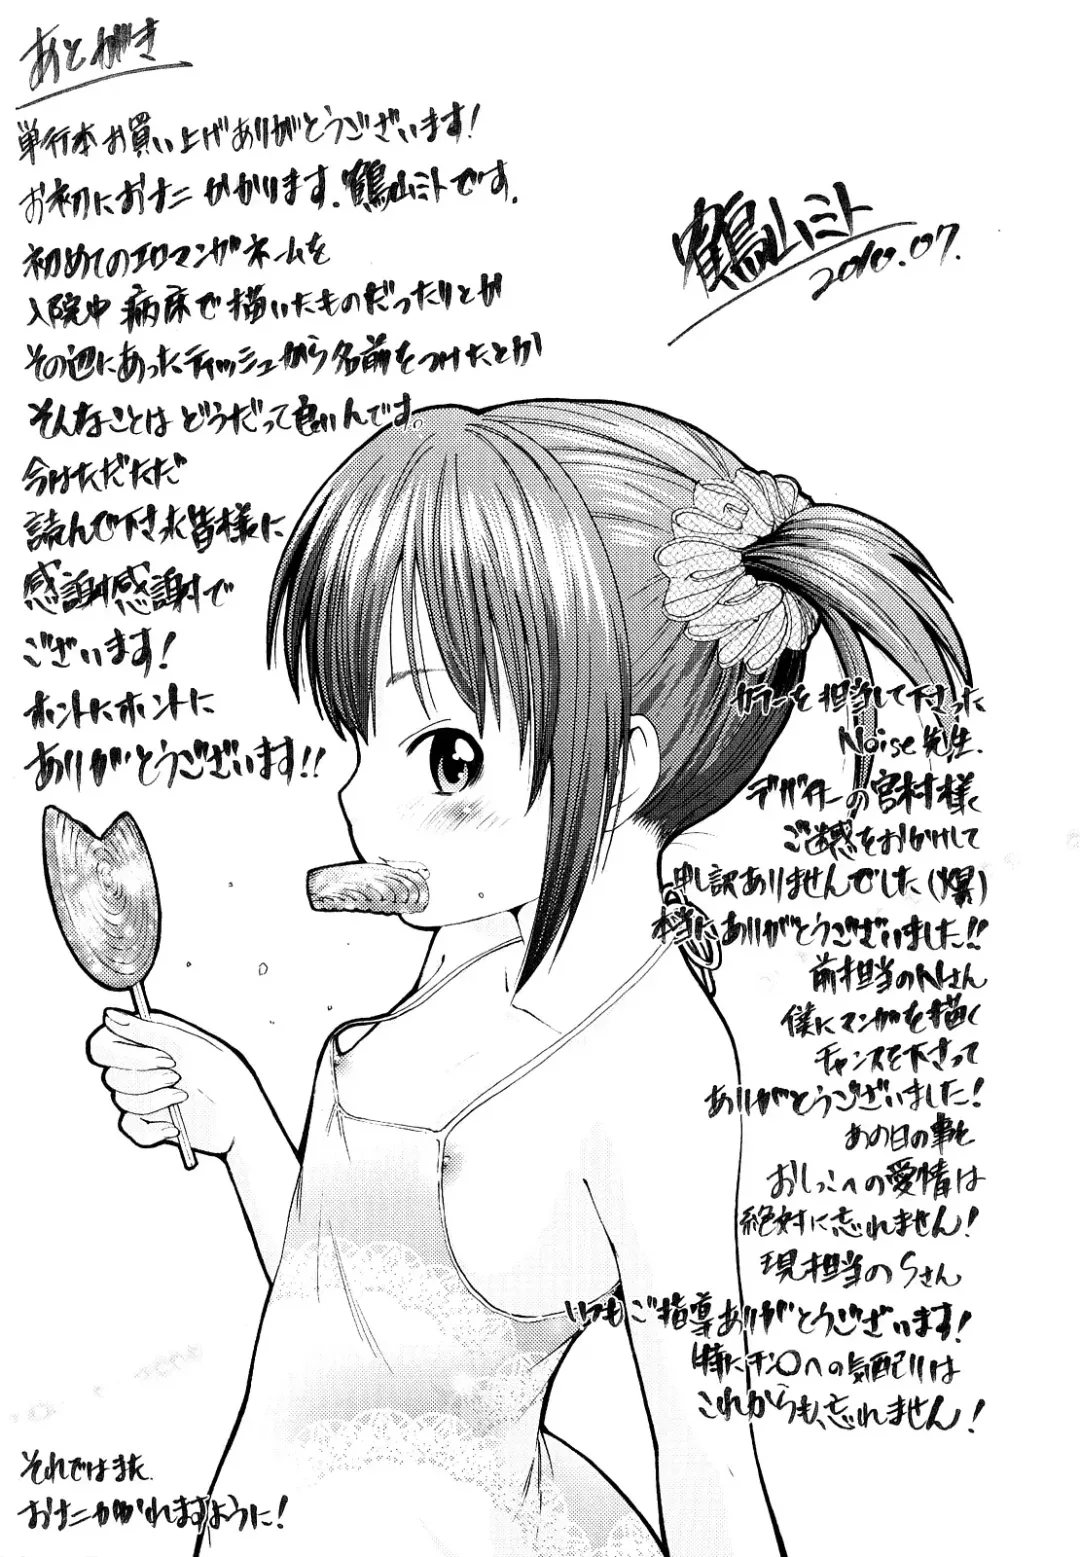 あとがき
単行本お買い上げありがとうございます!
お初におナニかかります。鶴山ミトです。
初めてのエロマンガネームを
入院中病床で描いたものだったりとか
その辺にあったティッシュから名前をつけたとか
そんなことはどうだって良いんです。
今はただただ
読んで下さる皆様に
感謝感謝で
ございます!
ホントにホントに
ありがとうございます!!
鶴山ミト
2010.07.
カラーを担当して下さった
Noise先生.
デザイナーの宮村様
ご迷惑をおかけして
申し訳ありませんでした(爆)
本当にありがとうございました!!
前担当のNさん
僕にマンガを描く
チャンスを下さって
ありがとうございました!
あの日の事と
おしっこへの愛情は
絶対に忘れません!
現担当のSさん
いつもご指導ありがとうございます!
特にチン○への気配りは
これからも、忘れません!
それではまた
おナニかかれますように!